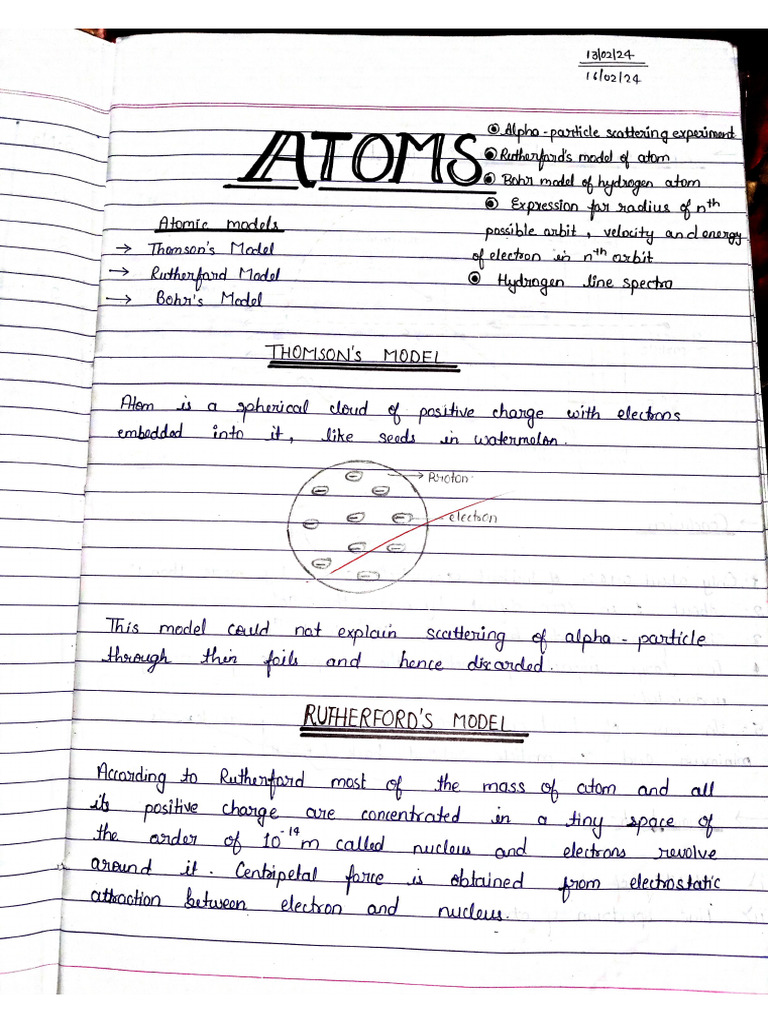 13/02/24
16/02/24
ATOMS
Alpha-particle scattering experiment
Rutherford's model of atom
Bohr model of hydrogen atom
Expression for radius of nth
possible orbit, velocity and energy
of electron in nth orbit
Hydrogen line spectra
Atomic models
→ Thomson's Model
→ Rutherford Model
→ Bohr's Model
THOMSON'S MODEL
Atom is a spherical cloud of positive charge with electrons
embedded into it, like seeds in watermelon.
Proton
electron
This model could not explain scattering of alpha-particle
through thin foils and hence discarded.
RUTHERFORD'S MODEL
According to Rutherford most of the mass of atom and all
its positive charge are concentrated in a tiny space of
the order of 10⁻¹⁴m called nucleus and electrons revolve
around it. Centripetal force is obtained from electrostatic
attraction between electron and nucleus.